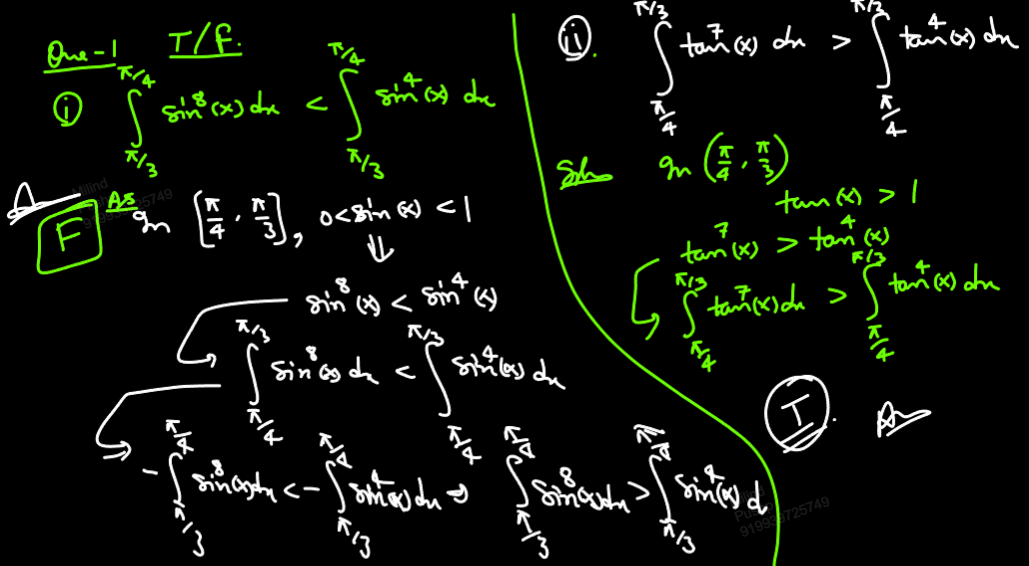 Que-1 T/F.
(i) ∫_{π/3}^{π/4} sin⁸(x) dx < ∫_{π/3}^{π/4} sin⁴(x) dx
F As In [π/4, π/3], 0<sin(x)<1
⇓
sin⁸(x) < sin⁴(x)
∫_{π/4}^{π/3} sin⁸(x) dx < ∫_{π/4}^{π/3} sin⁴(x) dx
-∫_{π/3}^{π/4} sin⁸(x)dx < -∫_{π/3}^{π/4} sin⁴(x)dx ⇒ ∫_{π/3}^{π/4} sin⁸(x)dx > ∫_{π/3}^{π/4} sin⁴(x)d
(ii). ∫_{π/4}^{π/3} tan⁷(x) dx > ∫_{π/4}^{π/3} tan⁴(x) dx
Soln In (π/4, π/3)
tan(x) > 1
tan⁷(x) > tan⁴(x)
∫_{π/4}^{π/3} tan⁷(x)dx > ∫_{π/4}^{π/3} tan⁴(x) dx
T.
Milind
919939725749